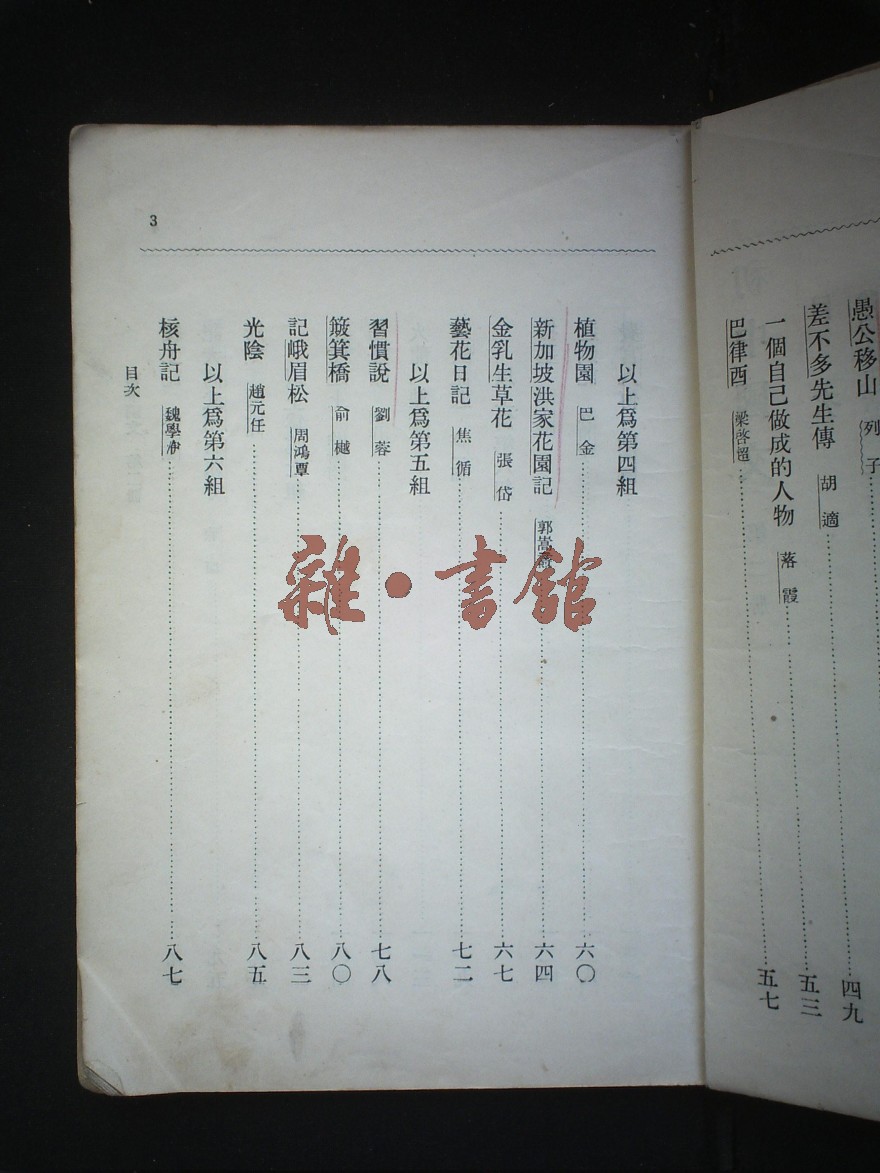 愚公移山 列子 四九
差不多先生傳 胡適 五三
一個自己做成的人物 落霞
巴律西 梁啓超 五七
3
以上爲第四組
植物園 巴金 六〇
新加坡洪家花園記 郭嵩燾 六四
金乳生草花 張岱 六七
藝花日記 焦循 七二
以上爲第五組
習慣說 劉蓉 七八
簸箕橋 俞樾 八〇
記峨眉松 周鴻覃 八三
光陰 趙元任 八五
以上爲第六組
核舟記 魏學洢 八七
目次
雜·書館